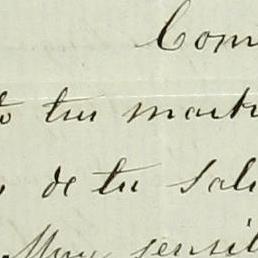 Com
to tus mark
de tu Salu
Muy sensib